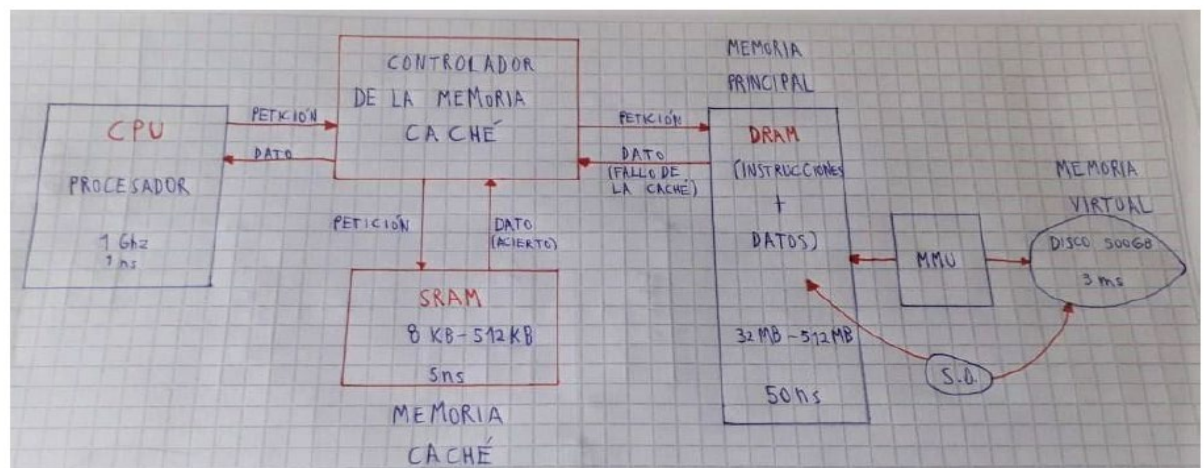 CPU
PROCESADOR
1 Ghz
1 ns
PETICIÓN
DATO
CONTROLADOR
DE LA MEMORIA
CACHÉ
PETICIÓN
DATO
(ACIERTO)
SRAM
8 KB - 512 KB
5ns
MEMORIA
CACHÉ
PETICIÓN
DATO
(FALLO DE
LA CACHÉ)
MEMORIA
PRINCIPAL
DRAM
(INSTRUCCIONES
+
DATOS)
32 MB - 512 MB
50 ns
MMU
MEMORIA
VIRTUAL
DISCO 500GB
3 ms
S.O.